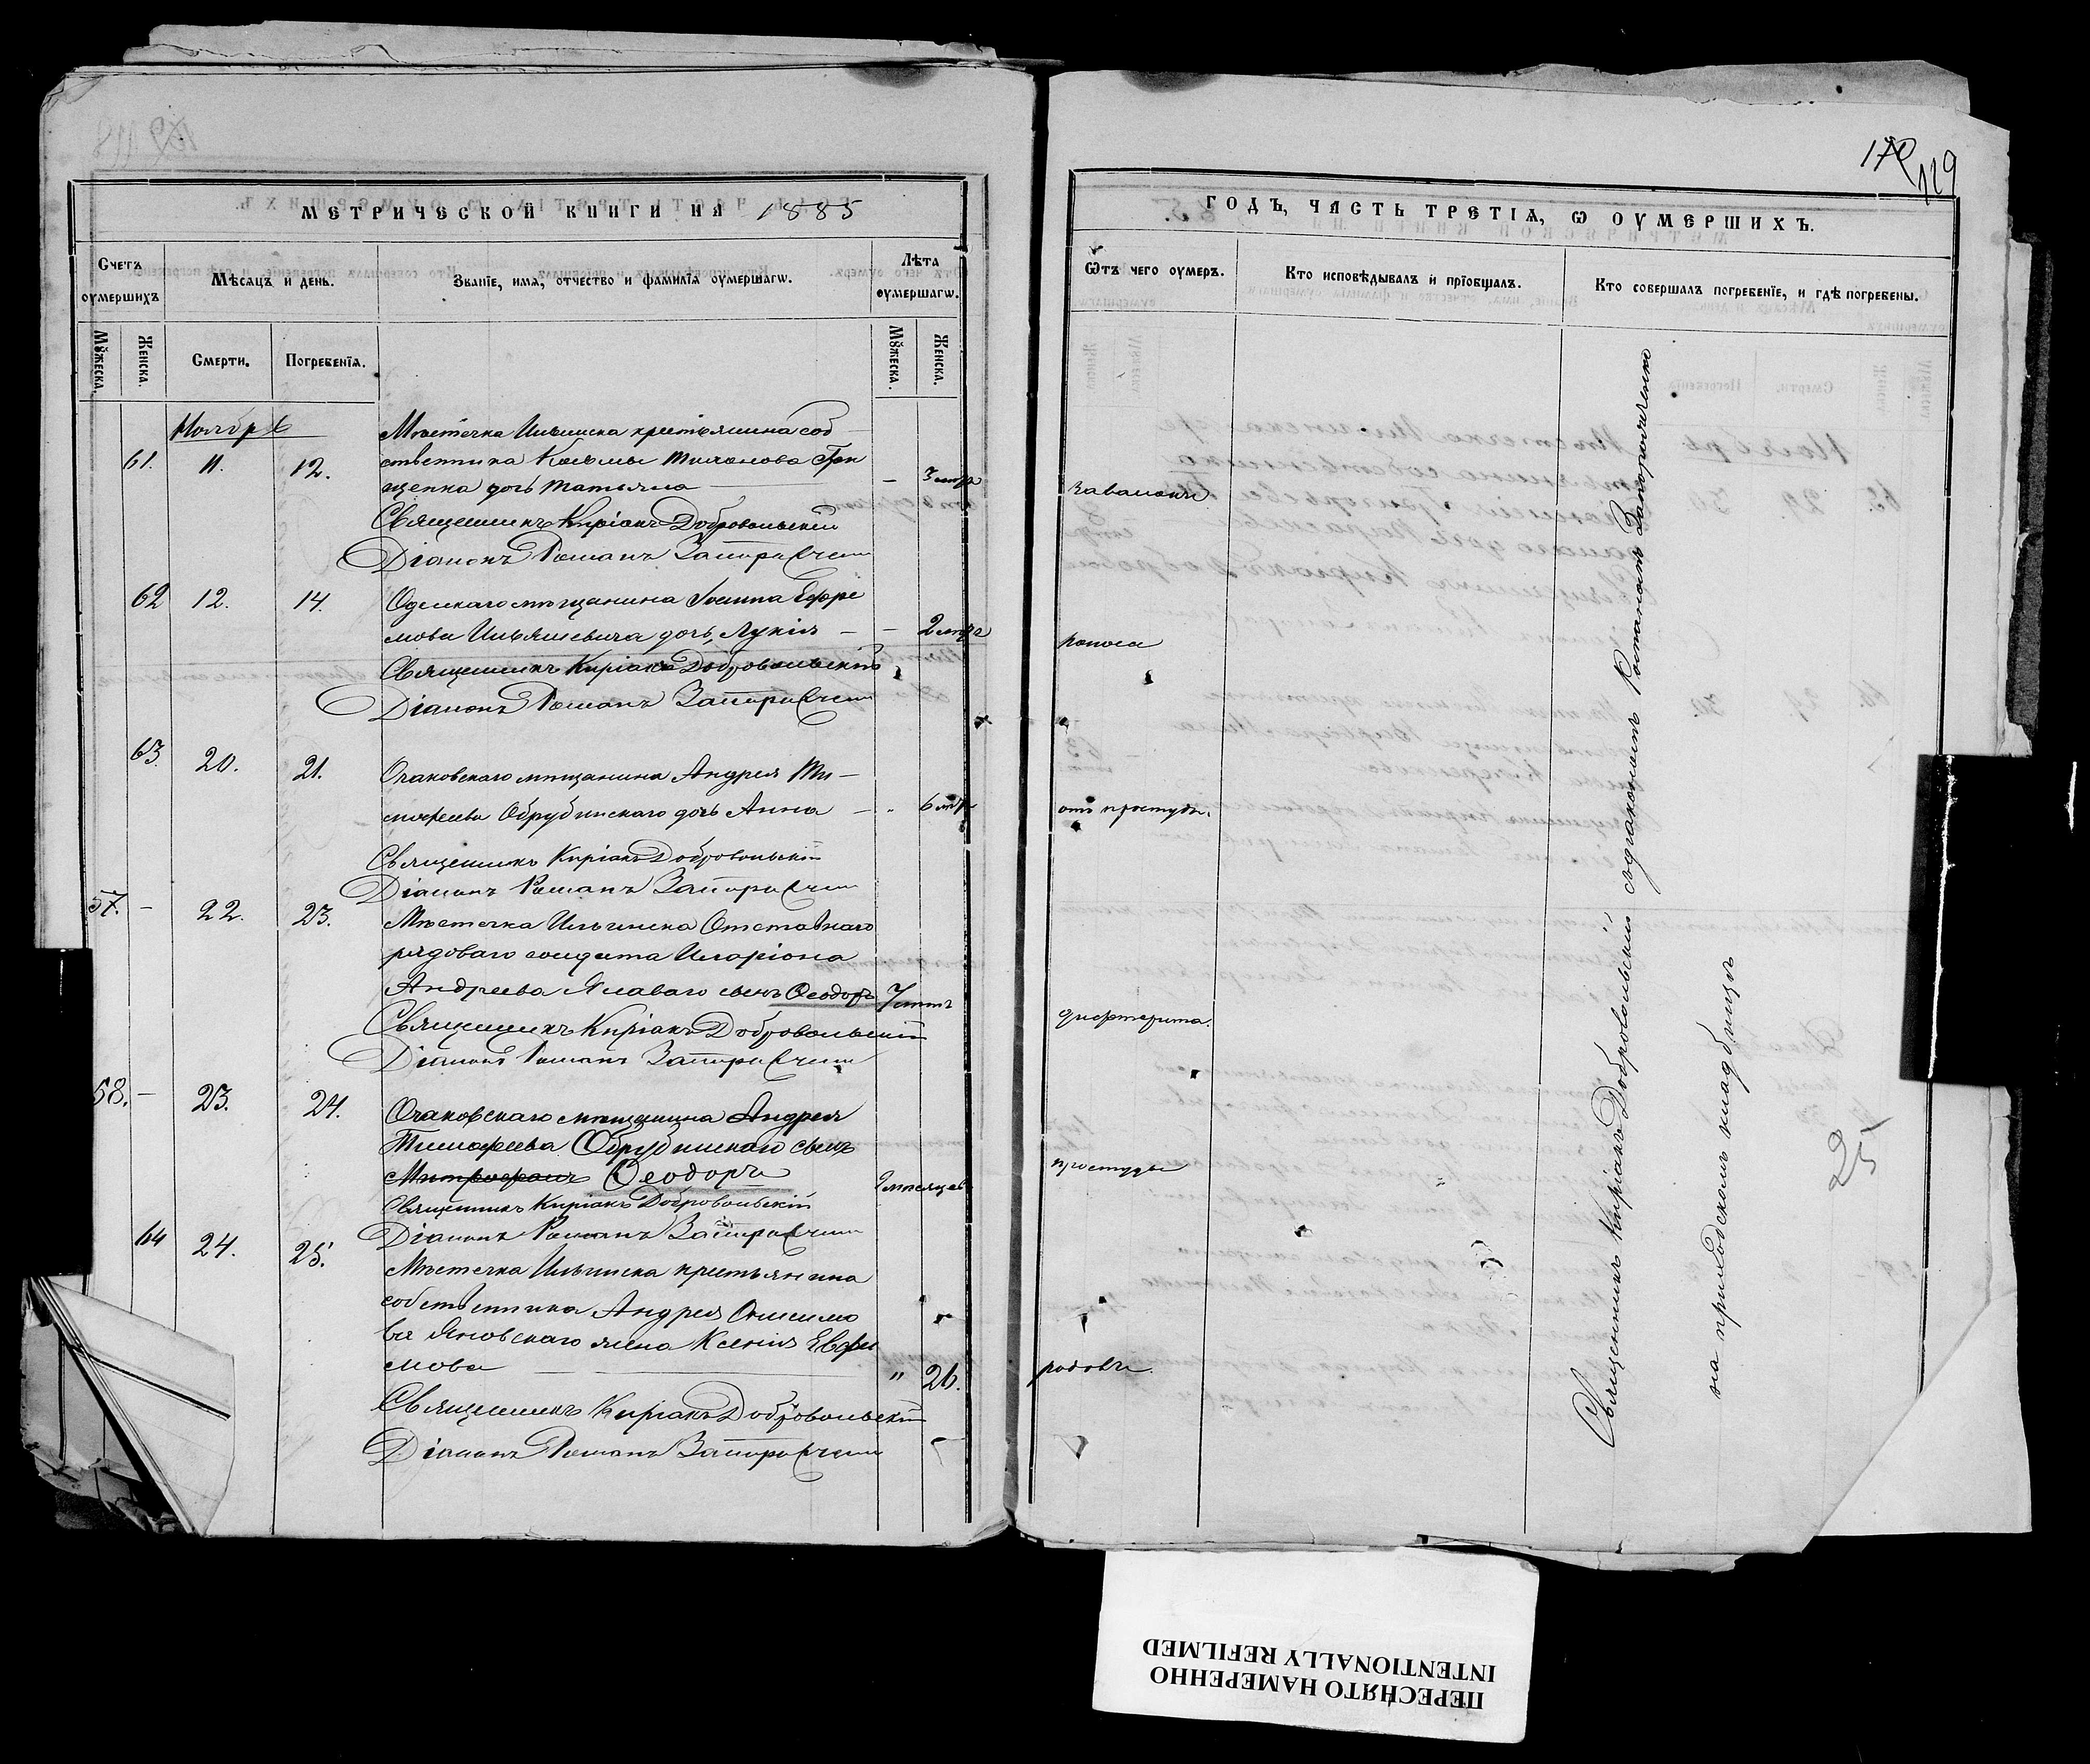 МЕТРИЧЕСКОЙ КНИГИ НА 1885
Счетъ оумершихъ
Мѣсяцъ и день.
Званіе, имя, отчество и фамилія оумершагѡ.
Лѣта оумершагѡ.
Мꙋжеска.
Женска.
Смерти.
Погребенїя.
Мꙋжеска.
Женска.
Ноябрь
Мѣстечка Ильинска крестьянина соб
61. 11. 12. ственника Косьмы
дочь Татьяна — —
Священникъ Киріакъ Добровольскій
Діаконъ Романъ Запорожченко
62 12. 14. Одесскаго мѣщанина Іоанна Ефре
мова Ильяшевича дочь Лукія — —
Священникъ Киріакъ Добровольскій
Діаконъ Романъ Запорожченко
63. 20. 21. Очаковскаго мѣщанина Андрея Ти—
мофеева Обрубинскаго дочь Анна —
Священникъ Киріакъ Добровольскій
Діаконъ Романъ Запорожченко
57. — 22. 23. Мѣстечка Ильинска Отставнаго
рядоваго солдата Иларіона
Андреева сынъ Ѳеодоръ 7
Священникъ Киріакъ Добровольскій
Діаконъ Романъ Запорожченко
58. — 23. 24. Очаковскаго мѣщанина Андрея
Тимофеева Обрубинскаго сынъ
Митрофанъ Ѳеодоръ мѣсяцев
Священникъ Киріакъ Добровольскій
Діаконъ Романъ Запорожченко
64 24. 25. Мѣстечка Ильинска крестьянина
собственника Андрея Онисимо
ва Яновскаго жена Ксенія Евфи
мова " 26.
Священникъ Киріакъ Добровольскій
Діаконъ Романъ Запорожченко
170
119
ГОДЪ, ЧАСТЬ ТРЕТІЯ, Ѡ ОУМЕРШИХЪ.
Ѿтъ чего оумеръ.
Кто исповѣдывалъ и прїобщалъ.
Кто совершалъ погребенїе, и гдѣ погребены.
поноса
отъ простуды.
дифтерита.
простуды
родовъ.
Священникъ Киріакъ Добровольскій съ діакономъ Романомъ Запорожченко
на приходскомъ кладбищѣ
25
ПЕРЕСНЯТО НАМЕРЕННО
INTENTIONALLY REFILMED